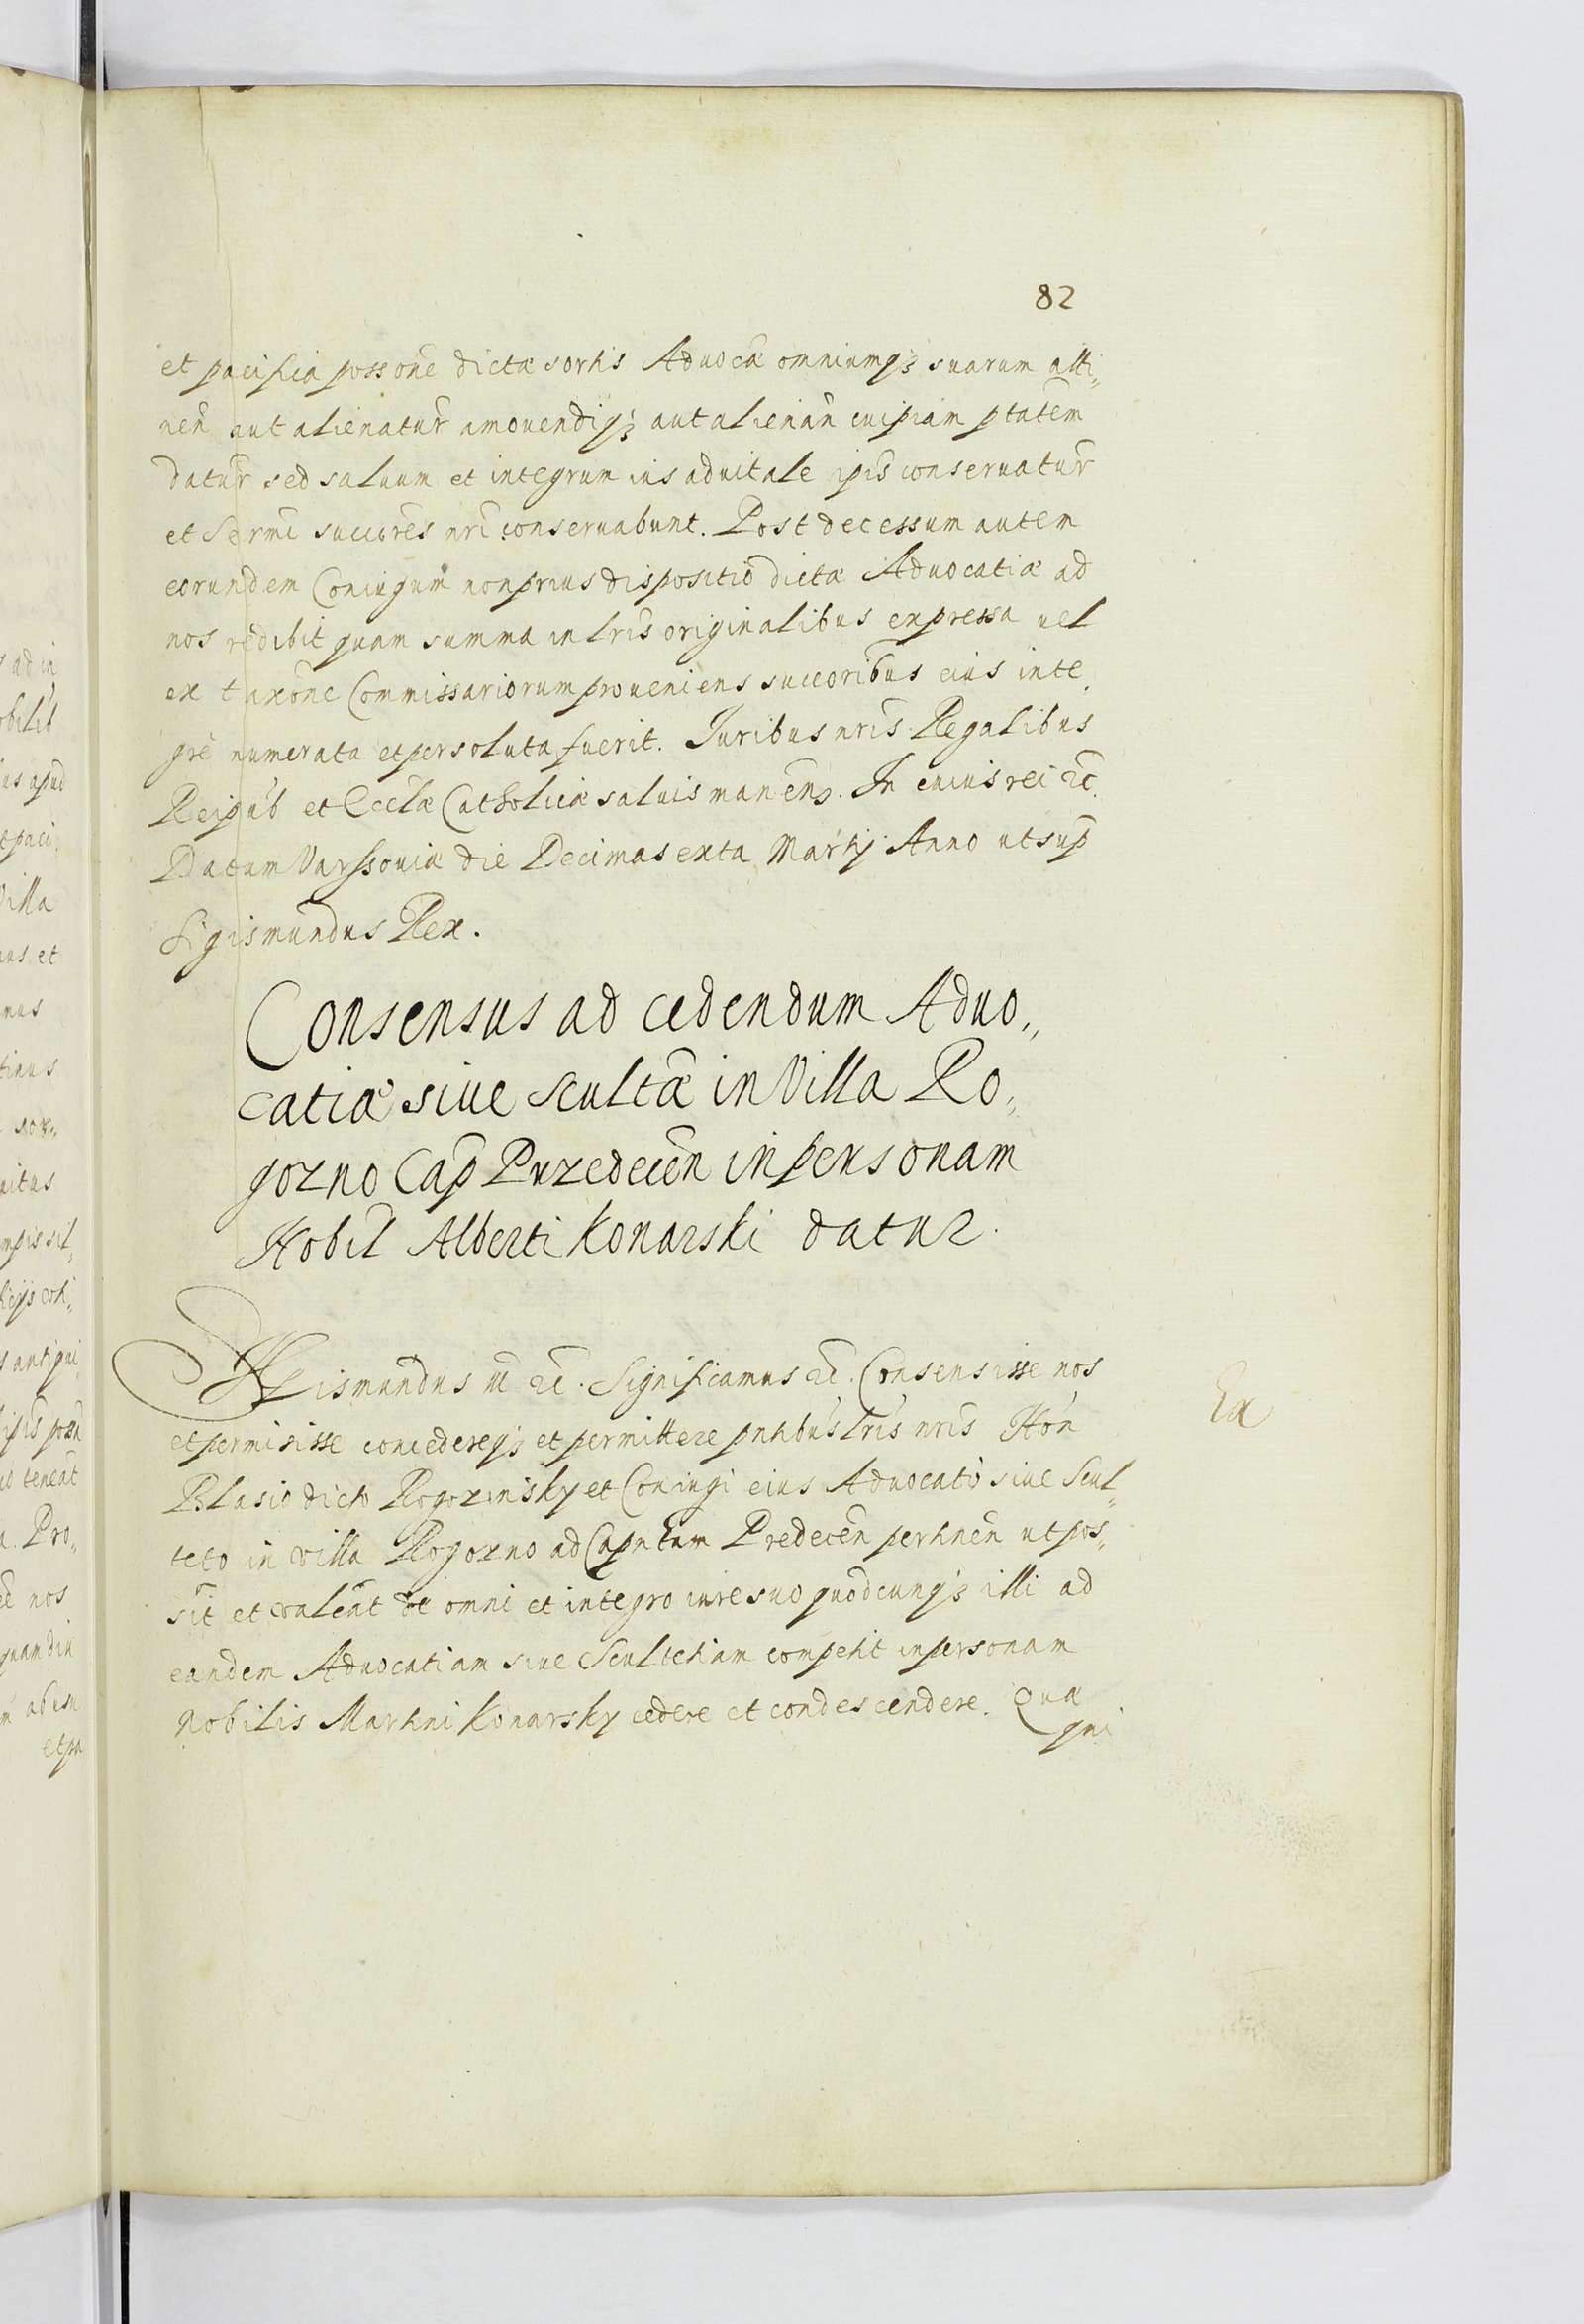 82
et pacifica possone dictæ sortis Aduocæ omniumqȝ suarum atti„
nen aut alienatur amouendiqȝ aut alienan cuipiam ptatem
datur sed saluum et integrum ius aduitale ipis conseruatur
et Sermi succores nri conseruabunt. Post decessum autem
eorundem Coniugum non prius dispositio dictæ Aduocatiæ ad
nos redibit quam summa in lris originalibus expressa uel
ex taxone Commissariorum proueniens succoribus eius inte„
gre numerata et persoluta fuerit. Juribus nris Regalibus
Reipub et Ecclæ Catholicæ saluis manen. In cuius rei &c.
Datum Varssouiæ die Decima sexta Martij Anno ut sup
Sigismundus Rex.
Consensus ad cedendum Aduo„
catiæ siue scultæ in Villa Ro„
gozno Cap Przedecen in personam
Nobil Alberti Konarski datur.
Sigismundus III &c. Significamus &c. Consensisse nos
et permisisse concedereqȝ et permittere pntibus lris nris Hon
Blasio dicto Rogozinsky et Coniugi eius Aduocato siue Scul„
teto in villa Rogozno ad Capntum Predecen pertinen ut pos„
sit et ualeat de omni et integro iure suo quodcunqȝ illi ad
eandem Aduocatiam siue Scultetiam competit in personam
Nobilis Martini Konarsky cedere et condescendere. Quæ
qui
Ex
s ad in
obilib
us apud
et paci„
Villa
uus et
mus
tinus
sor„
uitus
mpis sil„
s antiqui
ipis
teneat
a. Pro„
nos
quamdiu
et pa